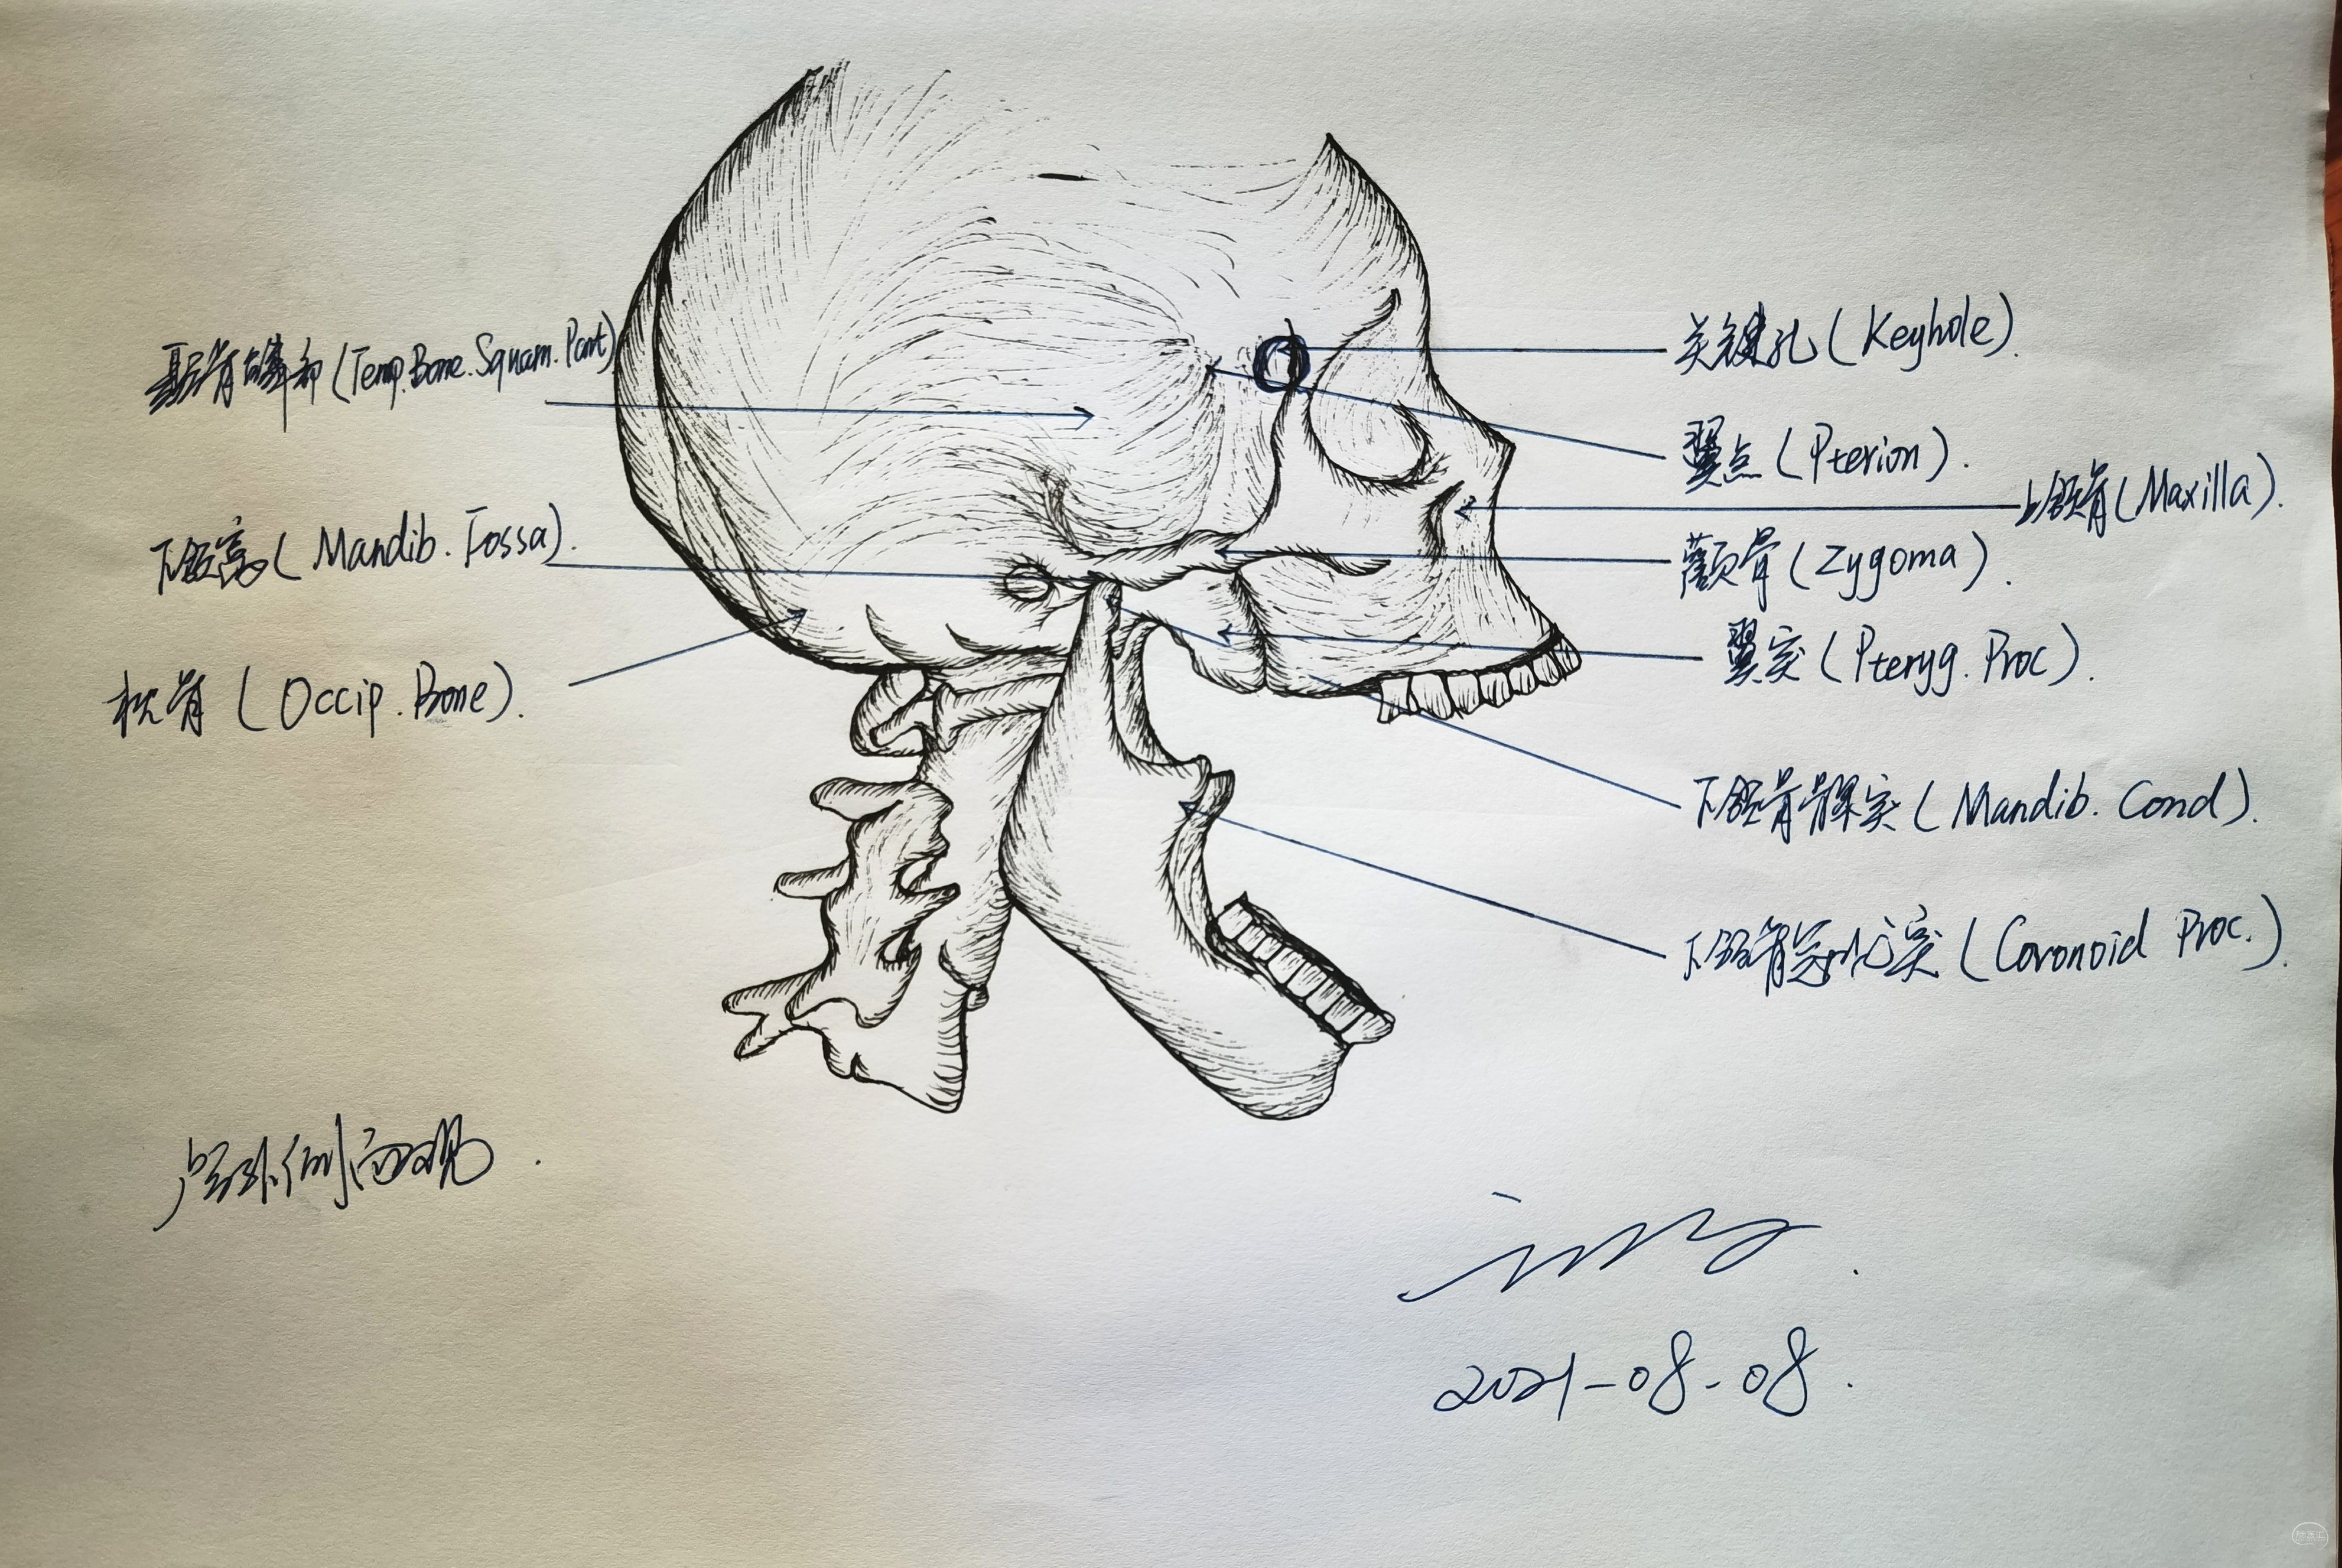 颞骨鳞部(Temp.Bone.Squam.Part)
下颌窝(Mandib. Fossa).
枕骨(Occip.Bone).
关键孔(Keyhole).
翼点(Pterion).
上颌骨(Maxilla).
颧骨(Zygoma).
翼突(Pteryg.Proc).
下颌骨髁突(Mandib. Cond).
下颌骨冠状突(Coronoid Proc.).
颅外侧面观.
2021-08-08.